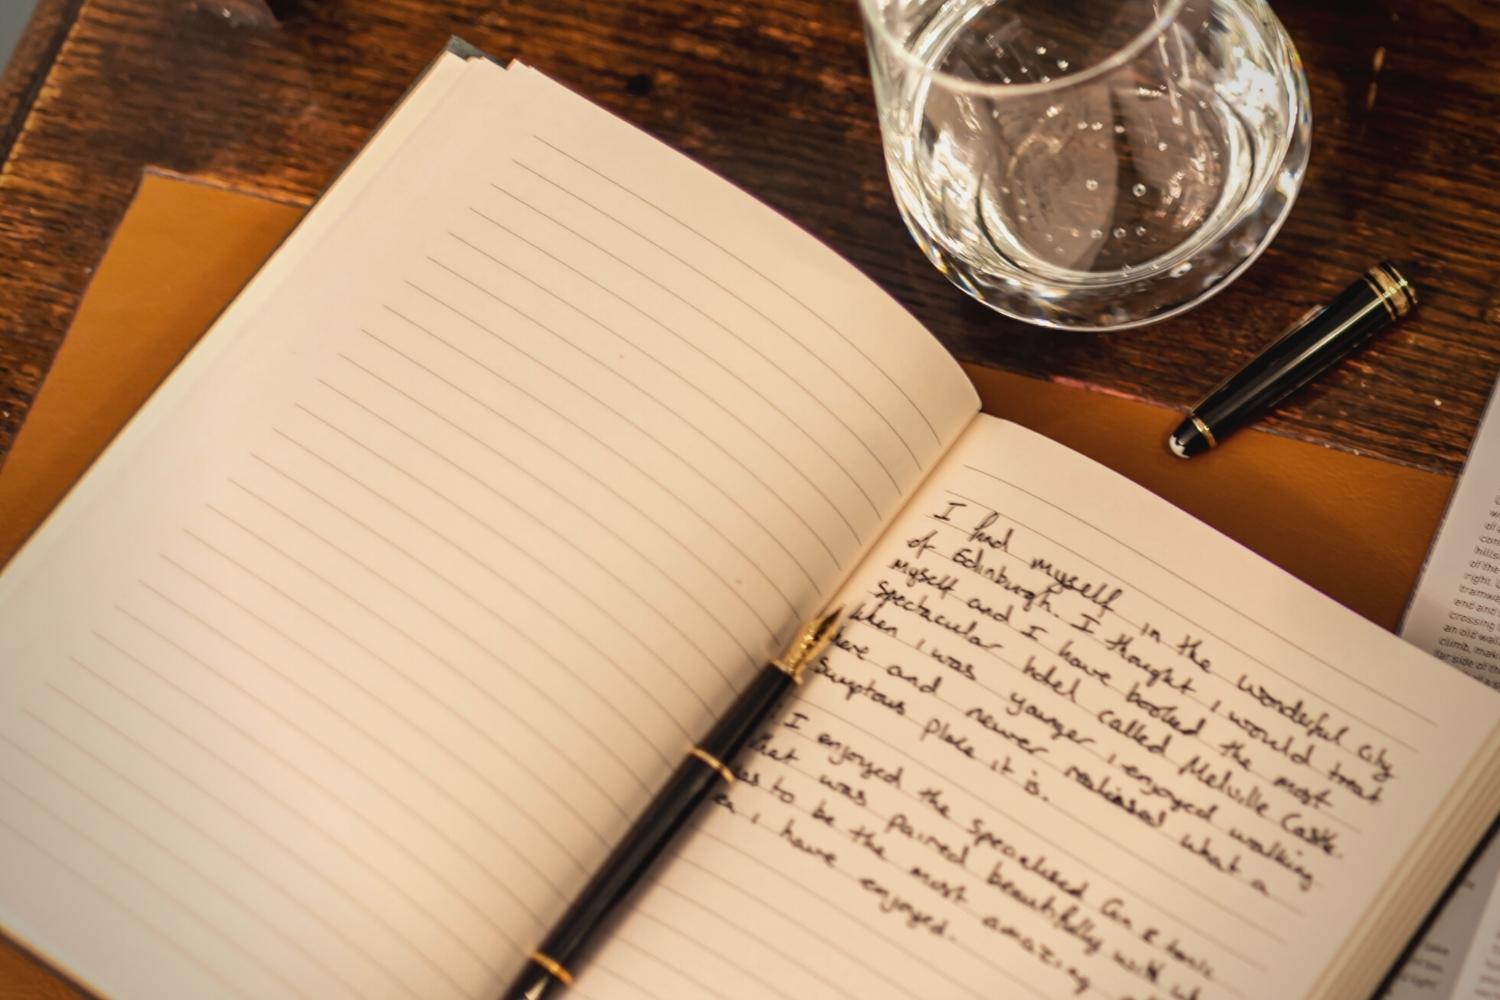 I find myself in the wonderful city
of Edinburgh. I thought I would treat
myself and I have booked the most
spectacular hotel called Melville Castle.
When I was younger I enjoyed walking
here and never realised what a
sumptous place it is.
I enjoyed the specialised Gin & tonic
that was paired beautifully with
as to be the most amazing
I have enjoyed.
hills
of the
right.
tramwa
end and
crossing
an old wall
climb, mak